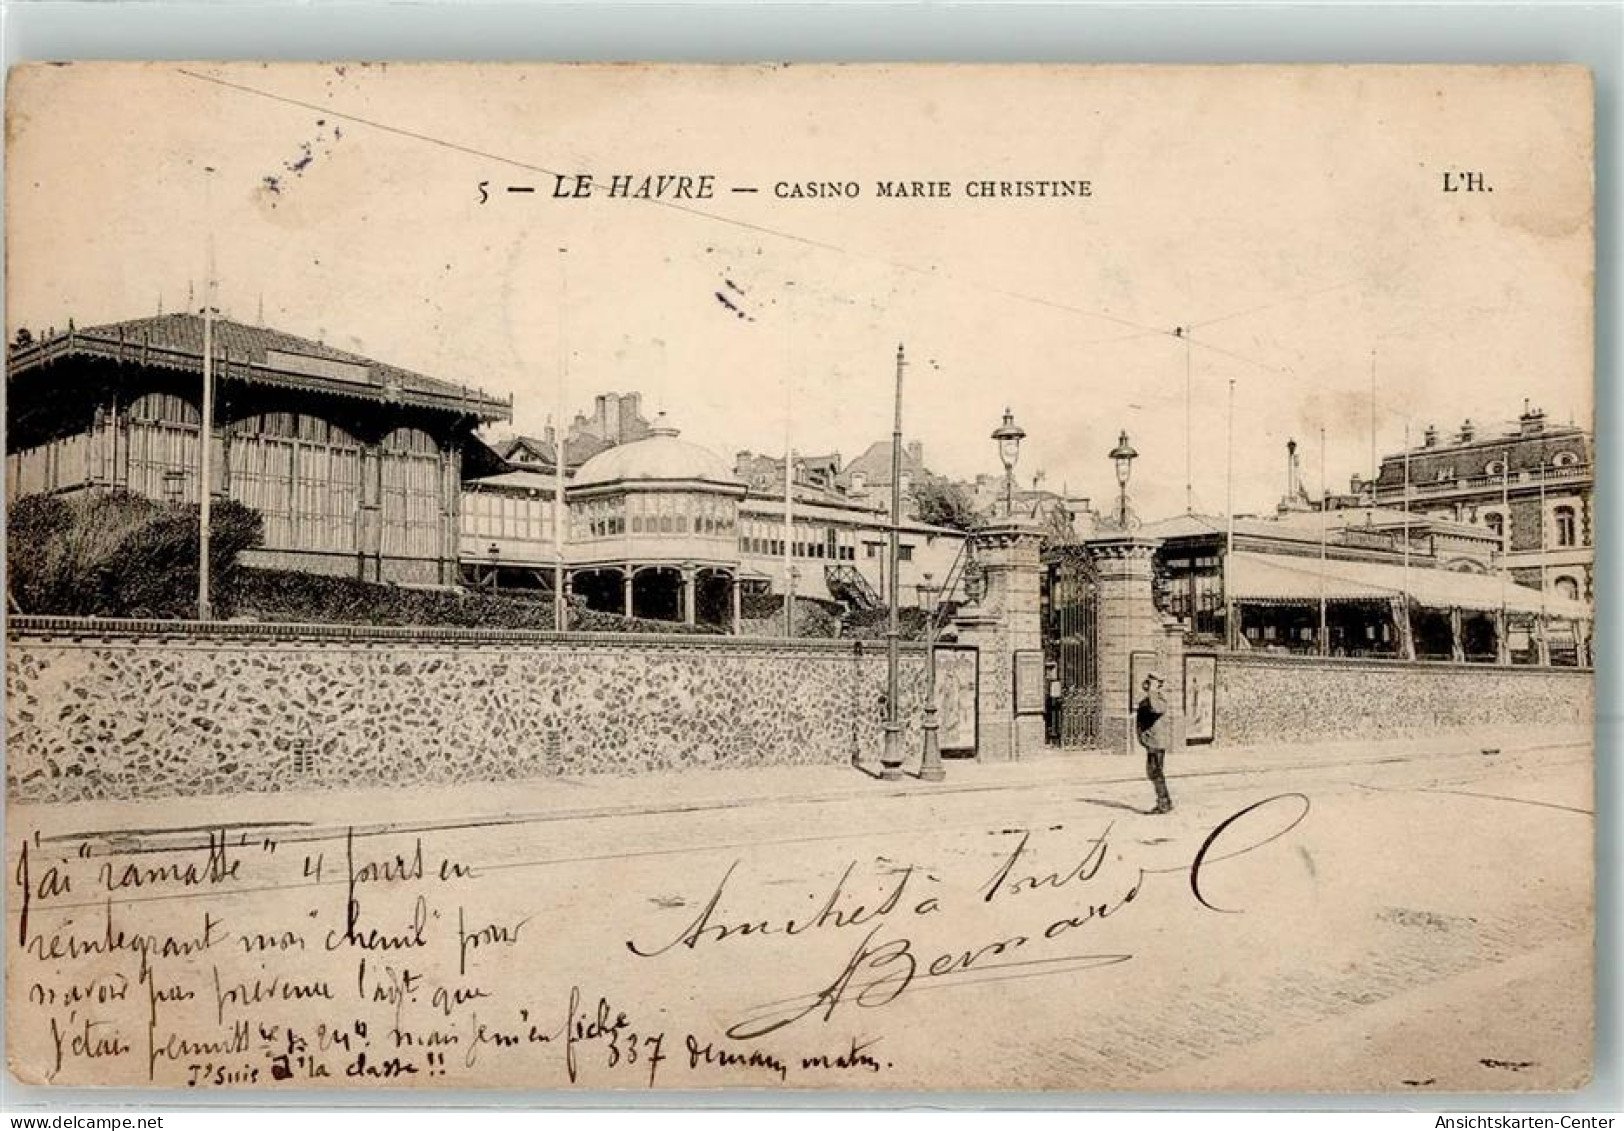 5 — LE HAVRE — CASINO MARIE CHRISTINE
L'H.
J'ai "ramassé" 4 jours en
réintégrant mon "chenil" pour
n'avoir pas prévenu l'adjt. que
j'étais permiss re de 24 h. mais j'm'en fiche
J'suis d'la classe !!
337 demain matin.
Amitiés à tous
ABernard
Ansichtskarten-Center